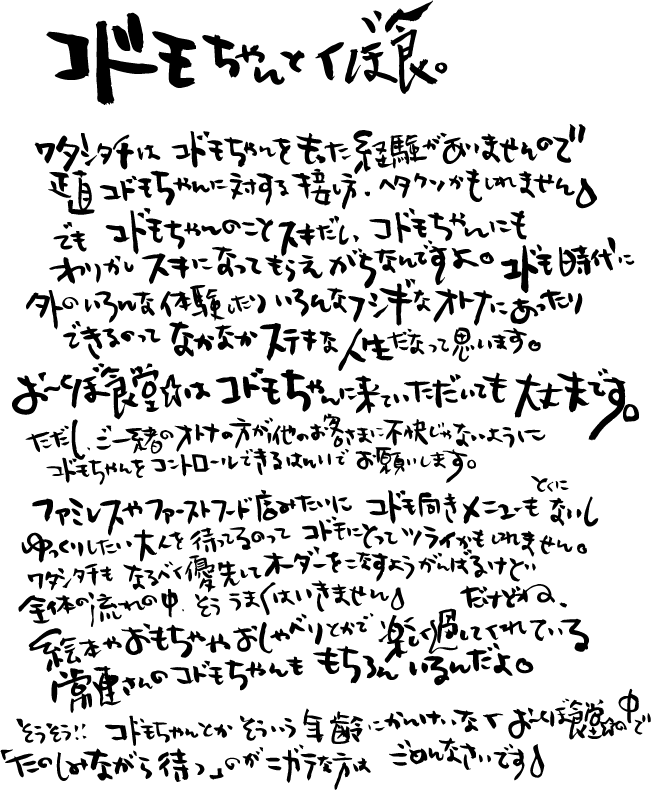 コドモちゃんとくぼ食。
ワタシタチは コドモちゃんをもった経験がありませんので
正直コドモちゃんに対する接し方、ヘタクソかもしれません♪
でも コドモちゃんのことスキだし、コドモちゃんにも
わりかしスキになってもらえがちなんですよ。コドモ時代に
外のいろんな体験したり いろんなフシギなオトナにあったり
できるのってなかなかステキな人生だなって思います。
お〜くぼ食堂☆は コドモちゃんに来ていただいても大丈夫です。
ただし、ご一緒のオトナの方が他のお客さまに不快じゃないように
コドモちゃんをコントロールできるはんいでお願いします。
ファミレスやファーストフード店みたいに コドモ向きメニューも とくにないし
ゆっくりしたい大人を待ってるのって コドモにとってツライかもしれません。
ワタシタチも なるべく優先してオーダーをこなすようがんばるけど…
全体の流れの中、そううまくはいきません♪ だけどね、
絵本やおもちゃやおしゃべりとかで楽しく過してくれている
常連さんのコドモちゃんも もちろん いるんだよ。
そうそう!! コドモちゃんとか そういう年齢にかんけいなく お〜くぼ食堂☆の中で
「たのしみながら待つ」のがニガテな方は ごめんなさいです♪